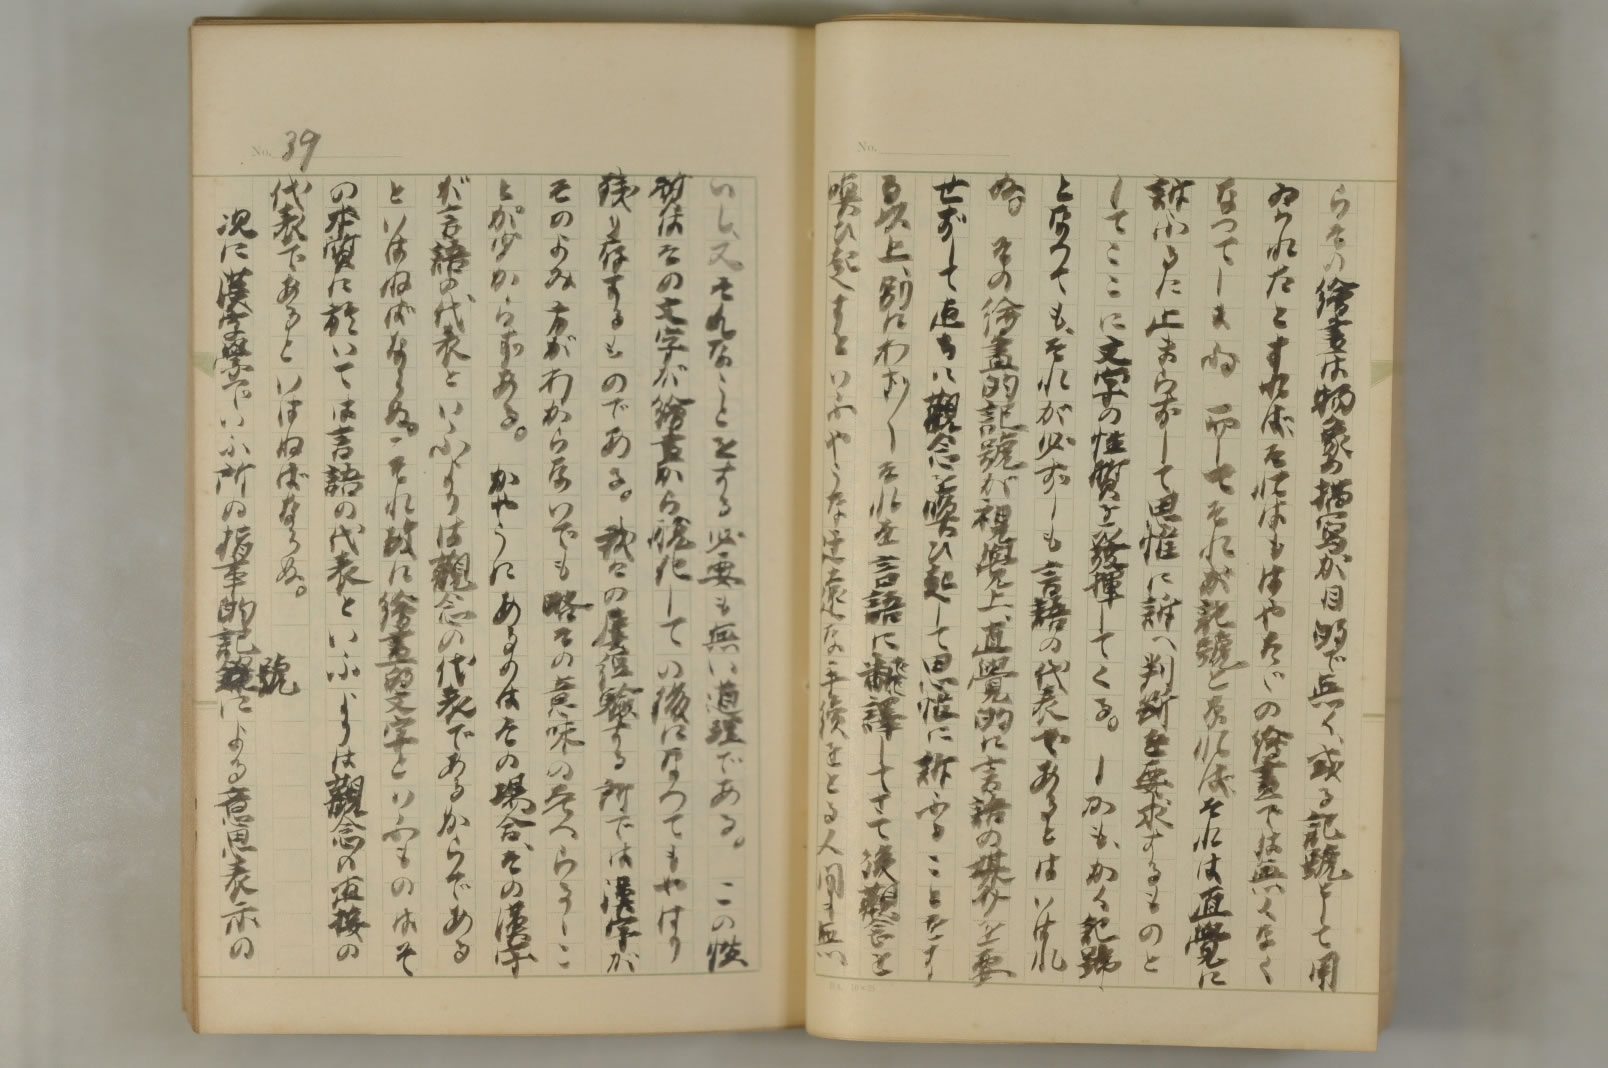 No.
らその繪畫は物象の描寫が目的で無く、或る記號として用
ゐられたとすればそれはもはやたゞの繪畫では無くなく
なつてしまふ。而してそれが記號となればそれは直覺に
訴ふるに止まらずして思惟に訴へ判斷を要求するものと
してここに文字の性質を發揮してくる。しかも、かく記號
となつても、それが必ずしも言語の代表であるとはいはれ
ぬ。その繪畫的記號が視覺上、直覺的に言語の媒介を要
せずして直ちに觀念を喚び起して思惟に訴ふることをす
る以上、別にわざ〳〵それを言語に飜譯してさて後觀念を
喚び起すといふやうな迂遠な手續をとる人間は無
No. 39
いし、又そんなことをする必要も無い道理である。この性
質はその文字が繪畫から脱化しての後になつてもやはり
殘り存するものである。我々の屢經驗する所では漢字が
そのよみ方がわからないでも略その意味の考へらるゝこ
とが少からずある。かやうにあるのはその場合、その漢字
が言語の代表といふよりは觀念の代表であるからである
といはねばならぬ。それ故に繪畫的文字といふものはそ
の本質に於いては言語の代表といふよりは觀念の直接の
代表であるといはねばならぬ。
次に漢字學でいふ所の指事的記號による意思表示の